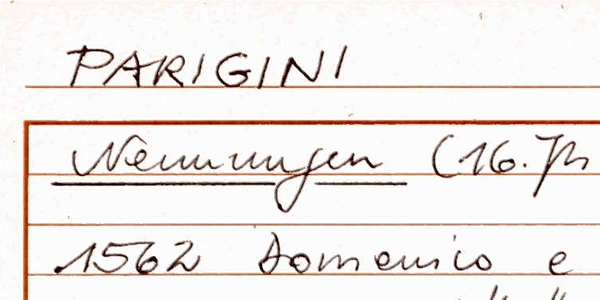 PARIGINI
Nennungen (16. Jh
1562 Domenico e